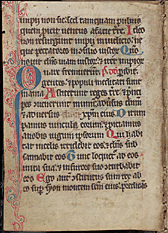 impii non sic sed tamquam pulvis
quem proicit ventus a facie t're Ideo
non resurgunt impii in iudicio neque
peccatores in
Quare fremuerunt
gentes et populi meditati sunt
inania Astiterunt reges t're et prin
cipes convenerunt in unum adversus dnm
et adversus xpm eius Dirum
pamus vincula eorum et proiciamus
a nobis iugum ipsorum Qui habi
tat in celis irridebit eos et dns sub
sannabit eos Tunc loquetur ad eos
in ira sua et in furore suo conturbabit
eos Ego autem constitutus sum rex ab
eo sup syon montem scm eius predicans